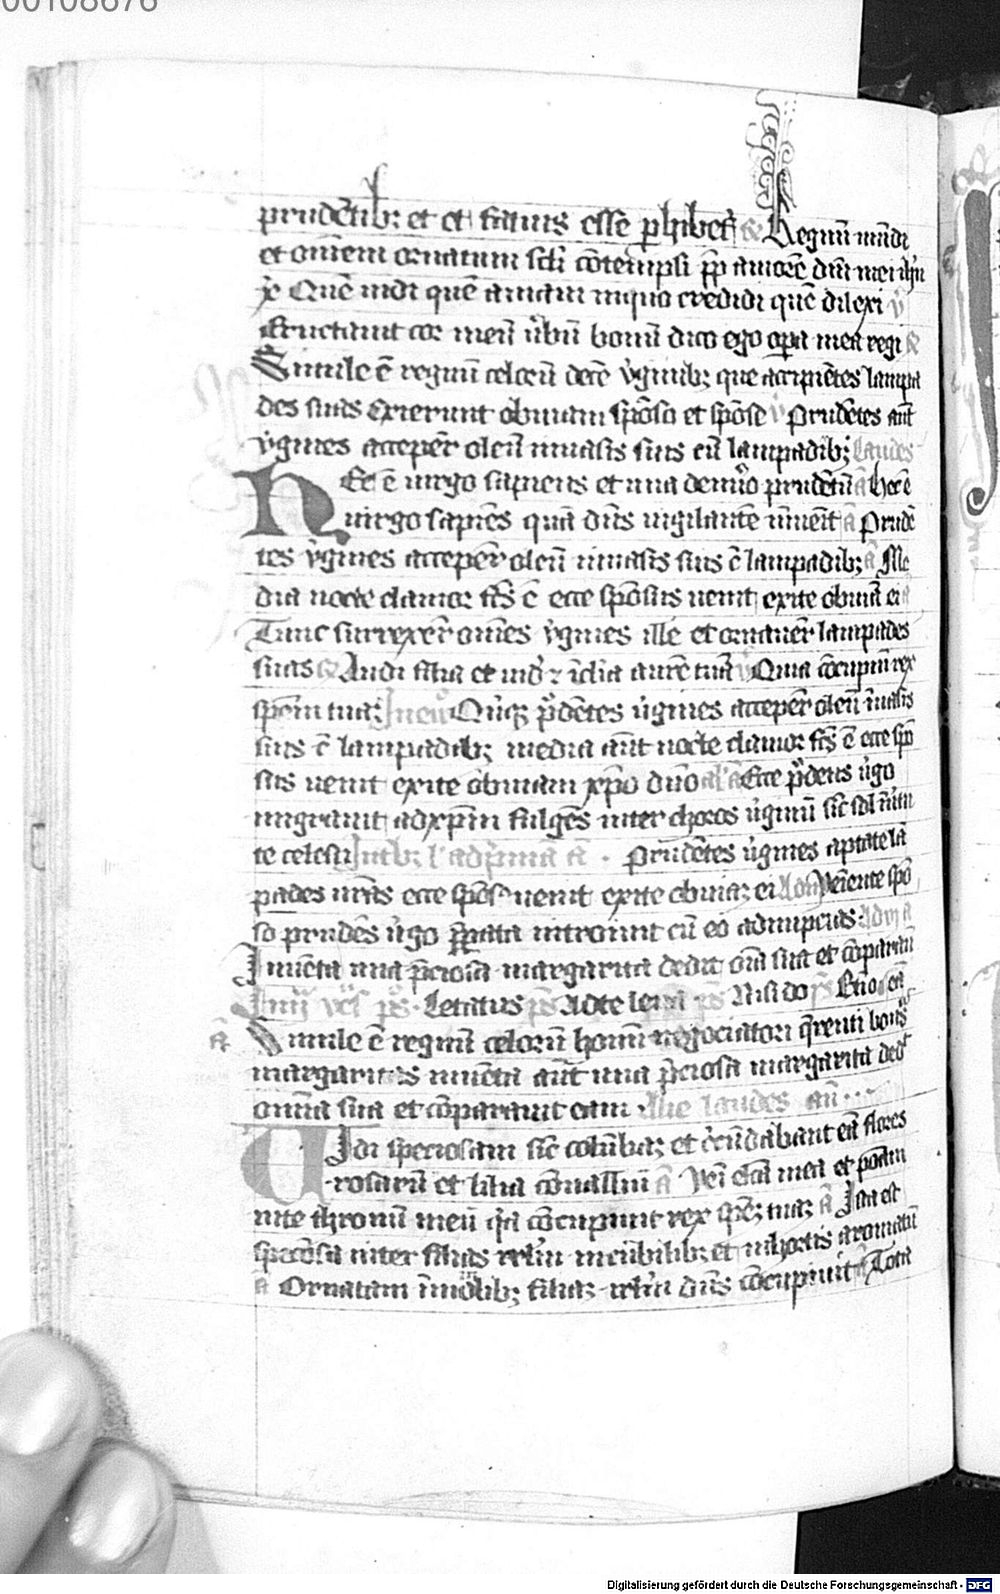 00108676
prudētib; et et fatuis esse ꝑhibet̉ Regnū mūdi
et omēm ornatum scłi cōtempsi ꝓp amorē dnī mei ihū
x̄ Quē uidi quē amaui in quo credidi quē dilexi v̉
Eructauit cor meū v̉bū bonū dico ego oꝑa mea regi
Simile ē regnū celoꝝ decē v̉ginib; que accipiētes lampa
des suas Exierunt obuiam spōso et spōse v̉ prudētes aūt
v̉gines acceper̄ oleū in uasis suis cū lampadib; laudes
Hec ē uirgo sapiens et una de nūo prudētū a Hec ē
uirgo sapiēs quā dn̄s uigilantē inuēit a Prudē
tes v̉gines acceper̄ oleū in uasis suis c̄ lampadib; a Me
dia nocte clamor fc̄s ē ecce spōsus uenit exite obuiā ei
Tunc surrexer̄ om̄es v̉gines ille et ornauer̄ lampades
suas Audi filia et uid̉ ⁊ īclīa aurē tuā v̉ Quia cōcupiuit rex
spēm tuā; In euo Qinq; p̉dētes v̉gines acceper̄ oleū ī uasis
suis c̄ lampadib; media aūt nocte clamor fc̄s ē ecce spō
sus uenit exite obuiam xp̄o dn̄o al' a Ecce p̉dens v̉go
migrauit ad xp̄m fulgēs inter choros v̉ginū sic̄ sol ī uirtu
te celesti Prudētes v̉gines aptate lā
pades ur̄as ecce spōs uenit exite obuiā; ei Veiente spō
so prudēs v̉go p̄ꝑata introiuit cū eo ad nupcias: Ad vj a
Inuēta una p̄ciosa margarita dedit oīa sua et cōparauit
Letatus ps Ad te leuaui ps Nisi do ps
a Simile ē regnū celoꝝ homī negociatori q̄renti bonas
margaritas inuēta aūt una p̄ciosa margarita ded̉
omīa sua et cōparauit eam Alie laudes añ
Vidi speciosam sic̄ colūbā; et c̉cūdabant eā flores
rosarū et lilia cōuallium a Veī elc̄a mea et ponam
in te thronū meū q̉a cōcupiuit rex spēz tuā; a Ista est
speciosa inter filias irłm a
a Ornatam ī mōilib; filiā; irłm dn̄s cōcupiuit a Tota
Digitalisierung gefördert durch die Deutsche Forschungsgemeinschaft - DFG